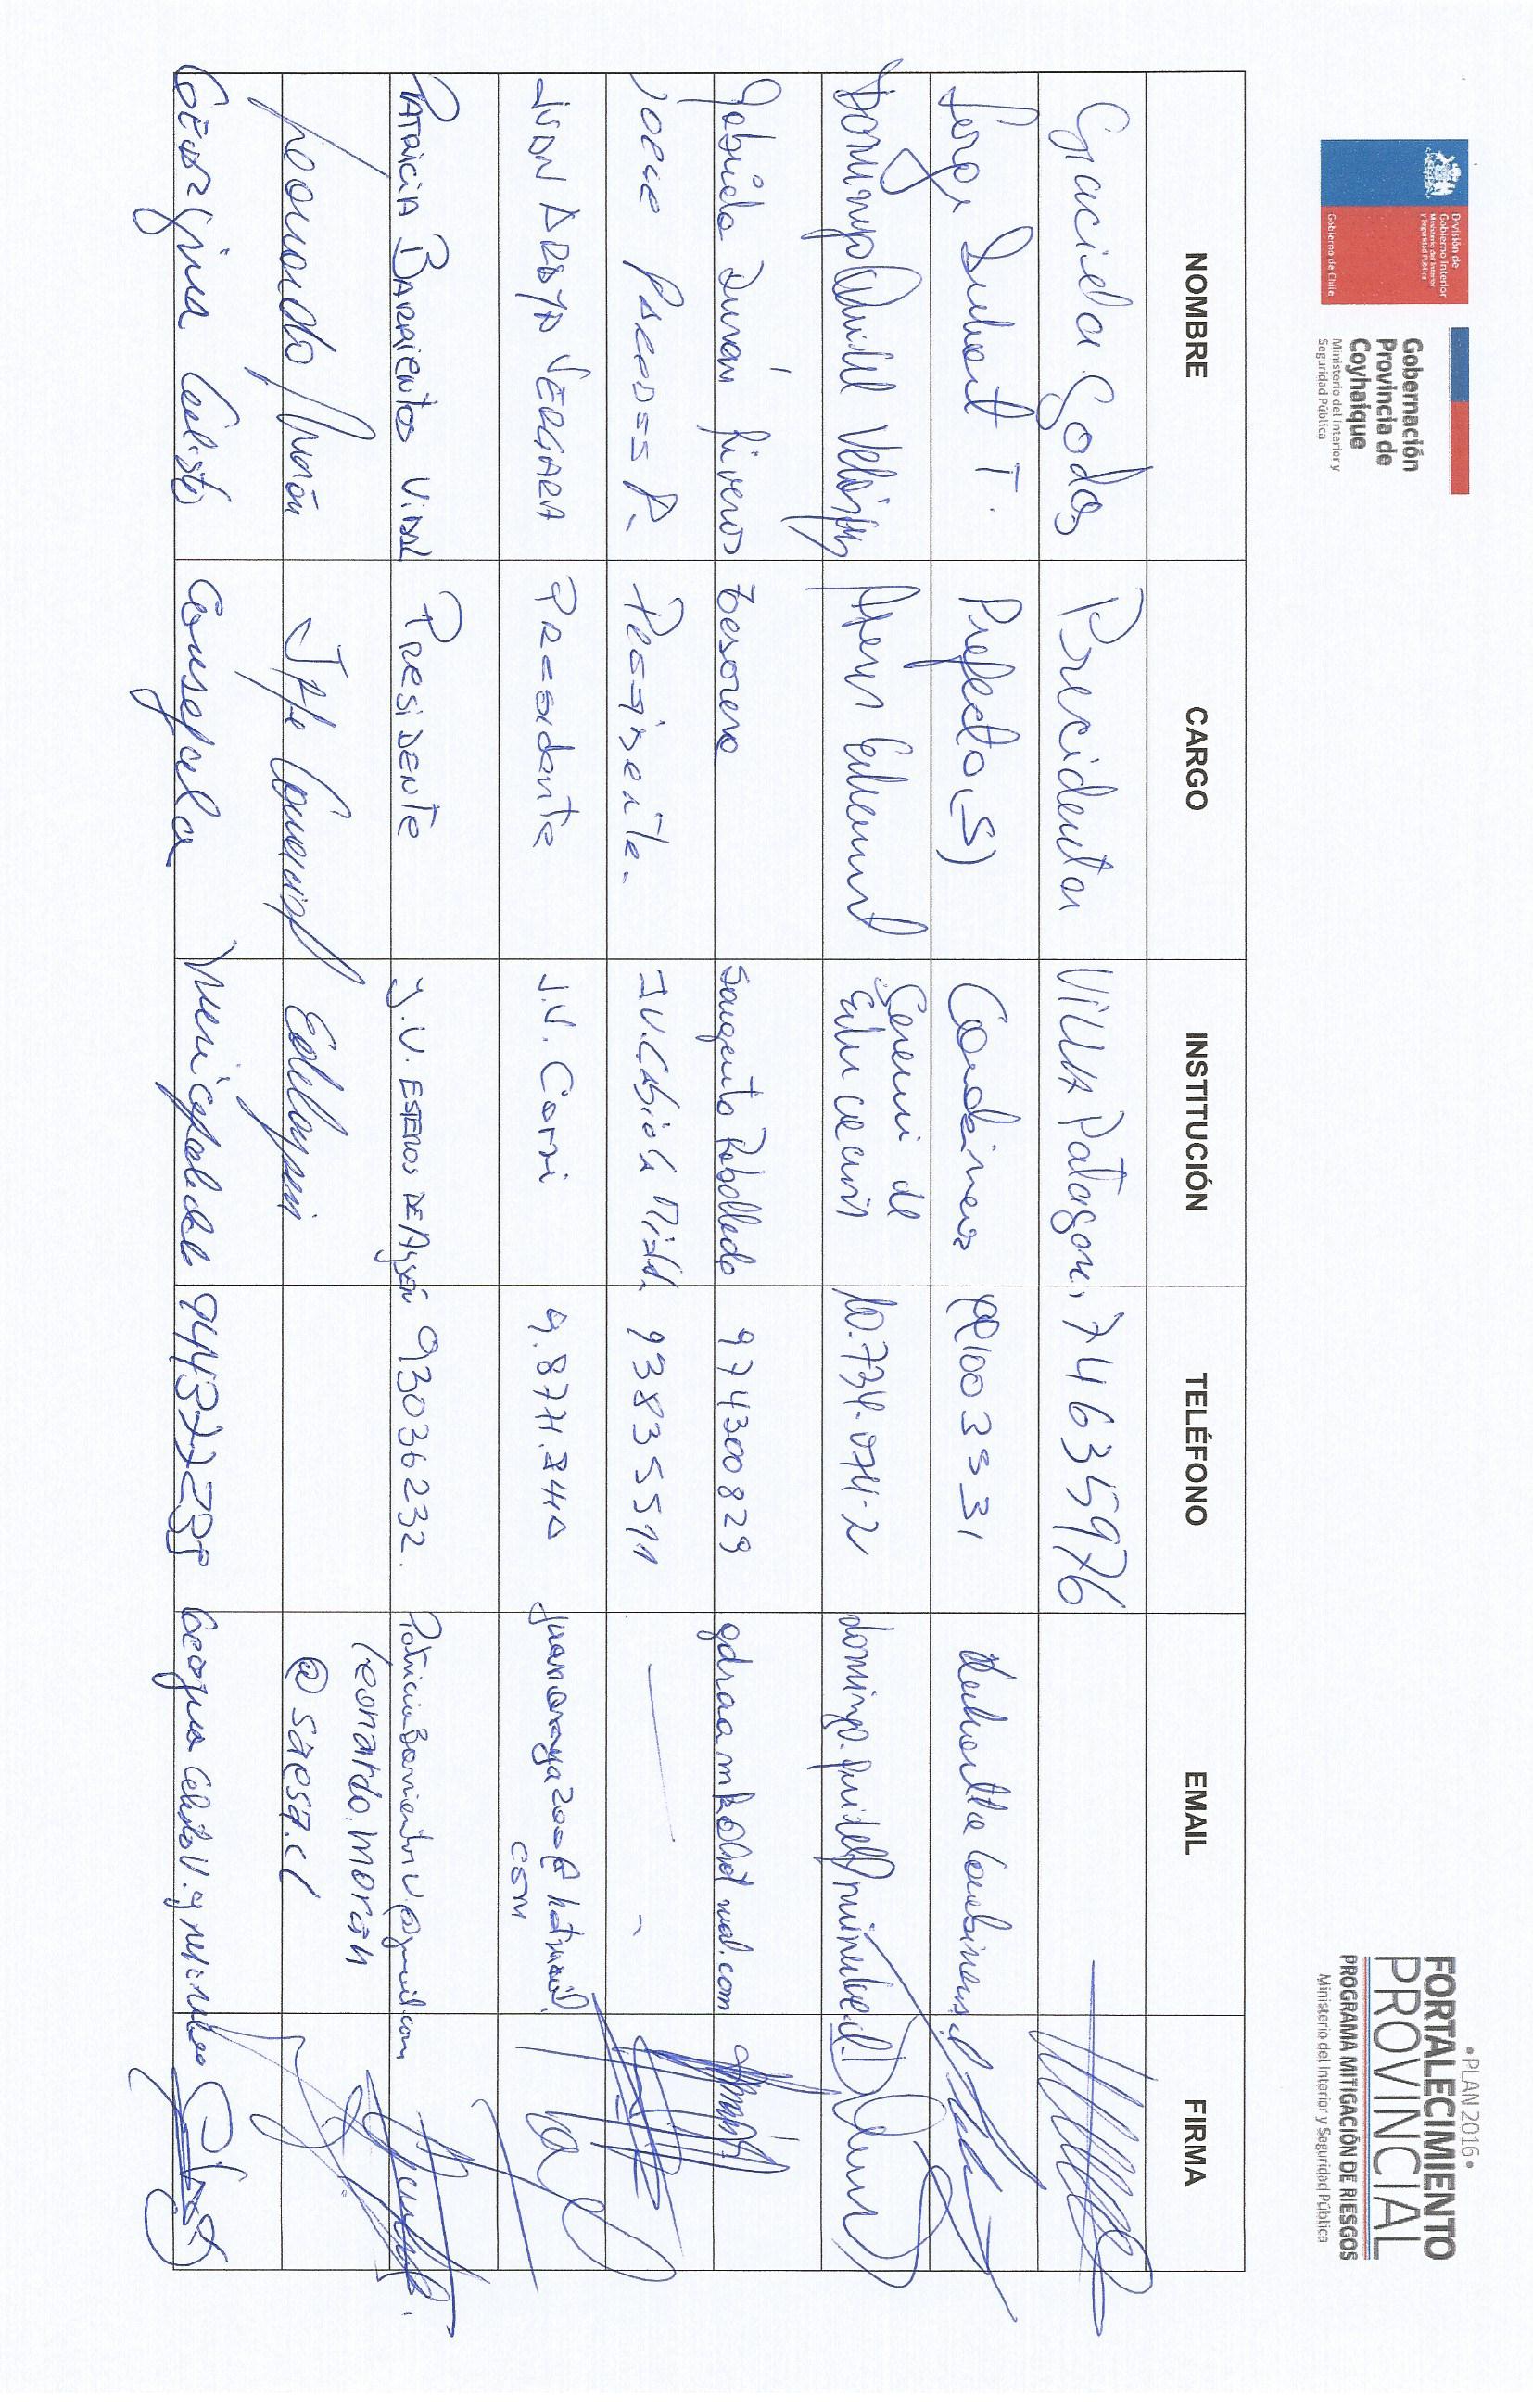 División de
Gobierno Interior
Ministerio del Interior
y Seguridad Pública
Gobierno de Chile
Gobernación
Provincia de
Coyhaique
Ministerio del Interior y
Seguridad Pública
• PLAN 2016 •
FORTALECIMIENTO
PROVINCIAL
PROGRAMA MITIGACIÓN DE RIESGOS
Ministerio del Interior y Seguridad Pública
NOMBRE CARGO INSTITUCIÓN TELÉFONO EMAIL FIRMA
Graciela Godoy Precidenta Villa Patagon. 74635976
T. Prefecto (S) Carabineros
Seremi de
Domingo Quidel Velásquez Educación 10.734.074-2
Gabriela Durán Riveros Tesorera Sargento Rebolledo 974300829 gdraamk@hotmail.com
Jorge Paredes P. Presidente. 93835511
JUAN ARAYA VERGARA Presidente J.V. 9.8771.840 juanaraya200@hotmail.
com
PATRICIA BARRIENTOS VIDAL PRESIDENTE J.V. ESTEROS DE Aysén 93036232. PatriciaBarrientosV.@gmail.com
leonardo.moran
Leonardo Morán Jefe Comercial Edelaysen
@saesa.cl
Georgina Calisto Consejala Municipalidad